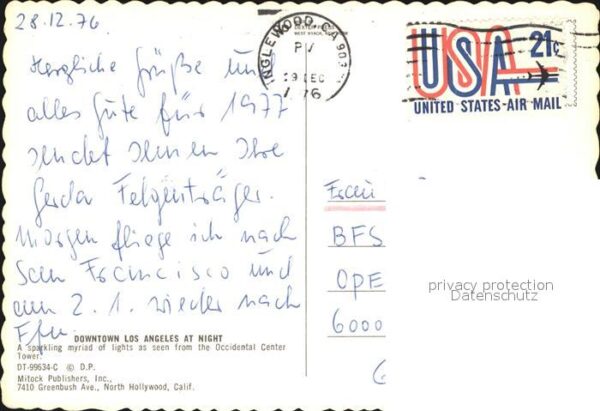 28.12.76
Herzliche Grüße und
alles Gute für 1977
sendet Ihnen Ihre
Gerda Felgenträger.
Morgen fliege ich nach
San Francisco und
am 2. 1. wieder nach
Ffm.
DOWNTOWN LOS ANGELES AT NIGHT
A sparkling myriad of lights as seen from the Occidental Center
Tower.
DT-99634-C © D.P.
Mitock Publishers, Inc.,
7410 Greenbush Ave., North Hollywood, Calif.
INGLEWOOD, CA 903
PM
29 DEC
1976
USA 21c
UNITED STATES-AIR MAIL
Frau
BFS
OPE
6000
6
privacy protection
Datenschutz